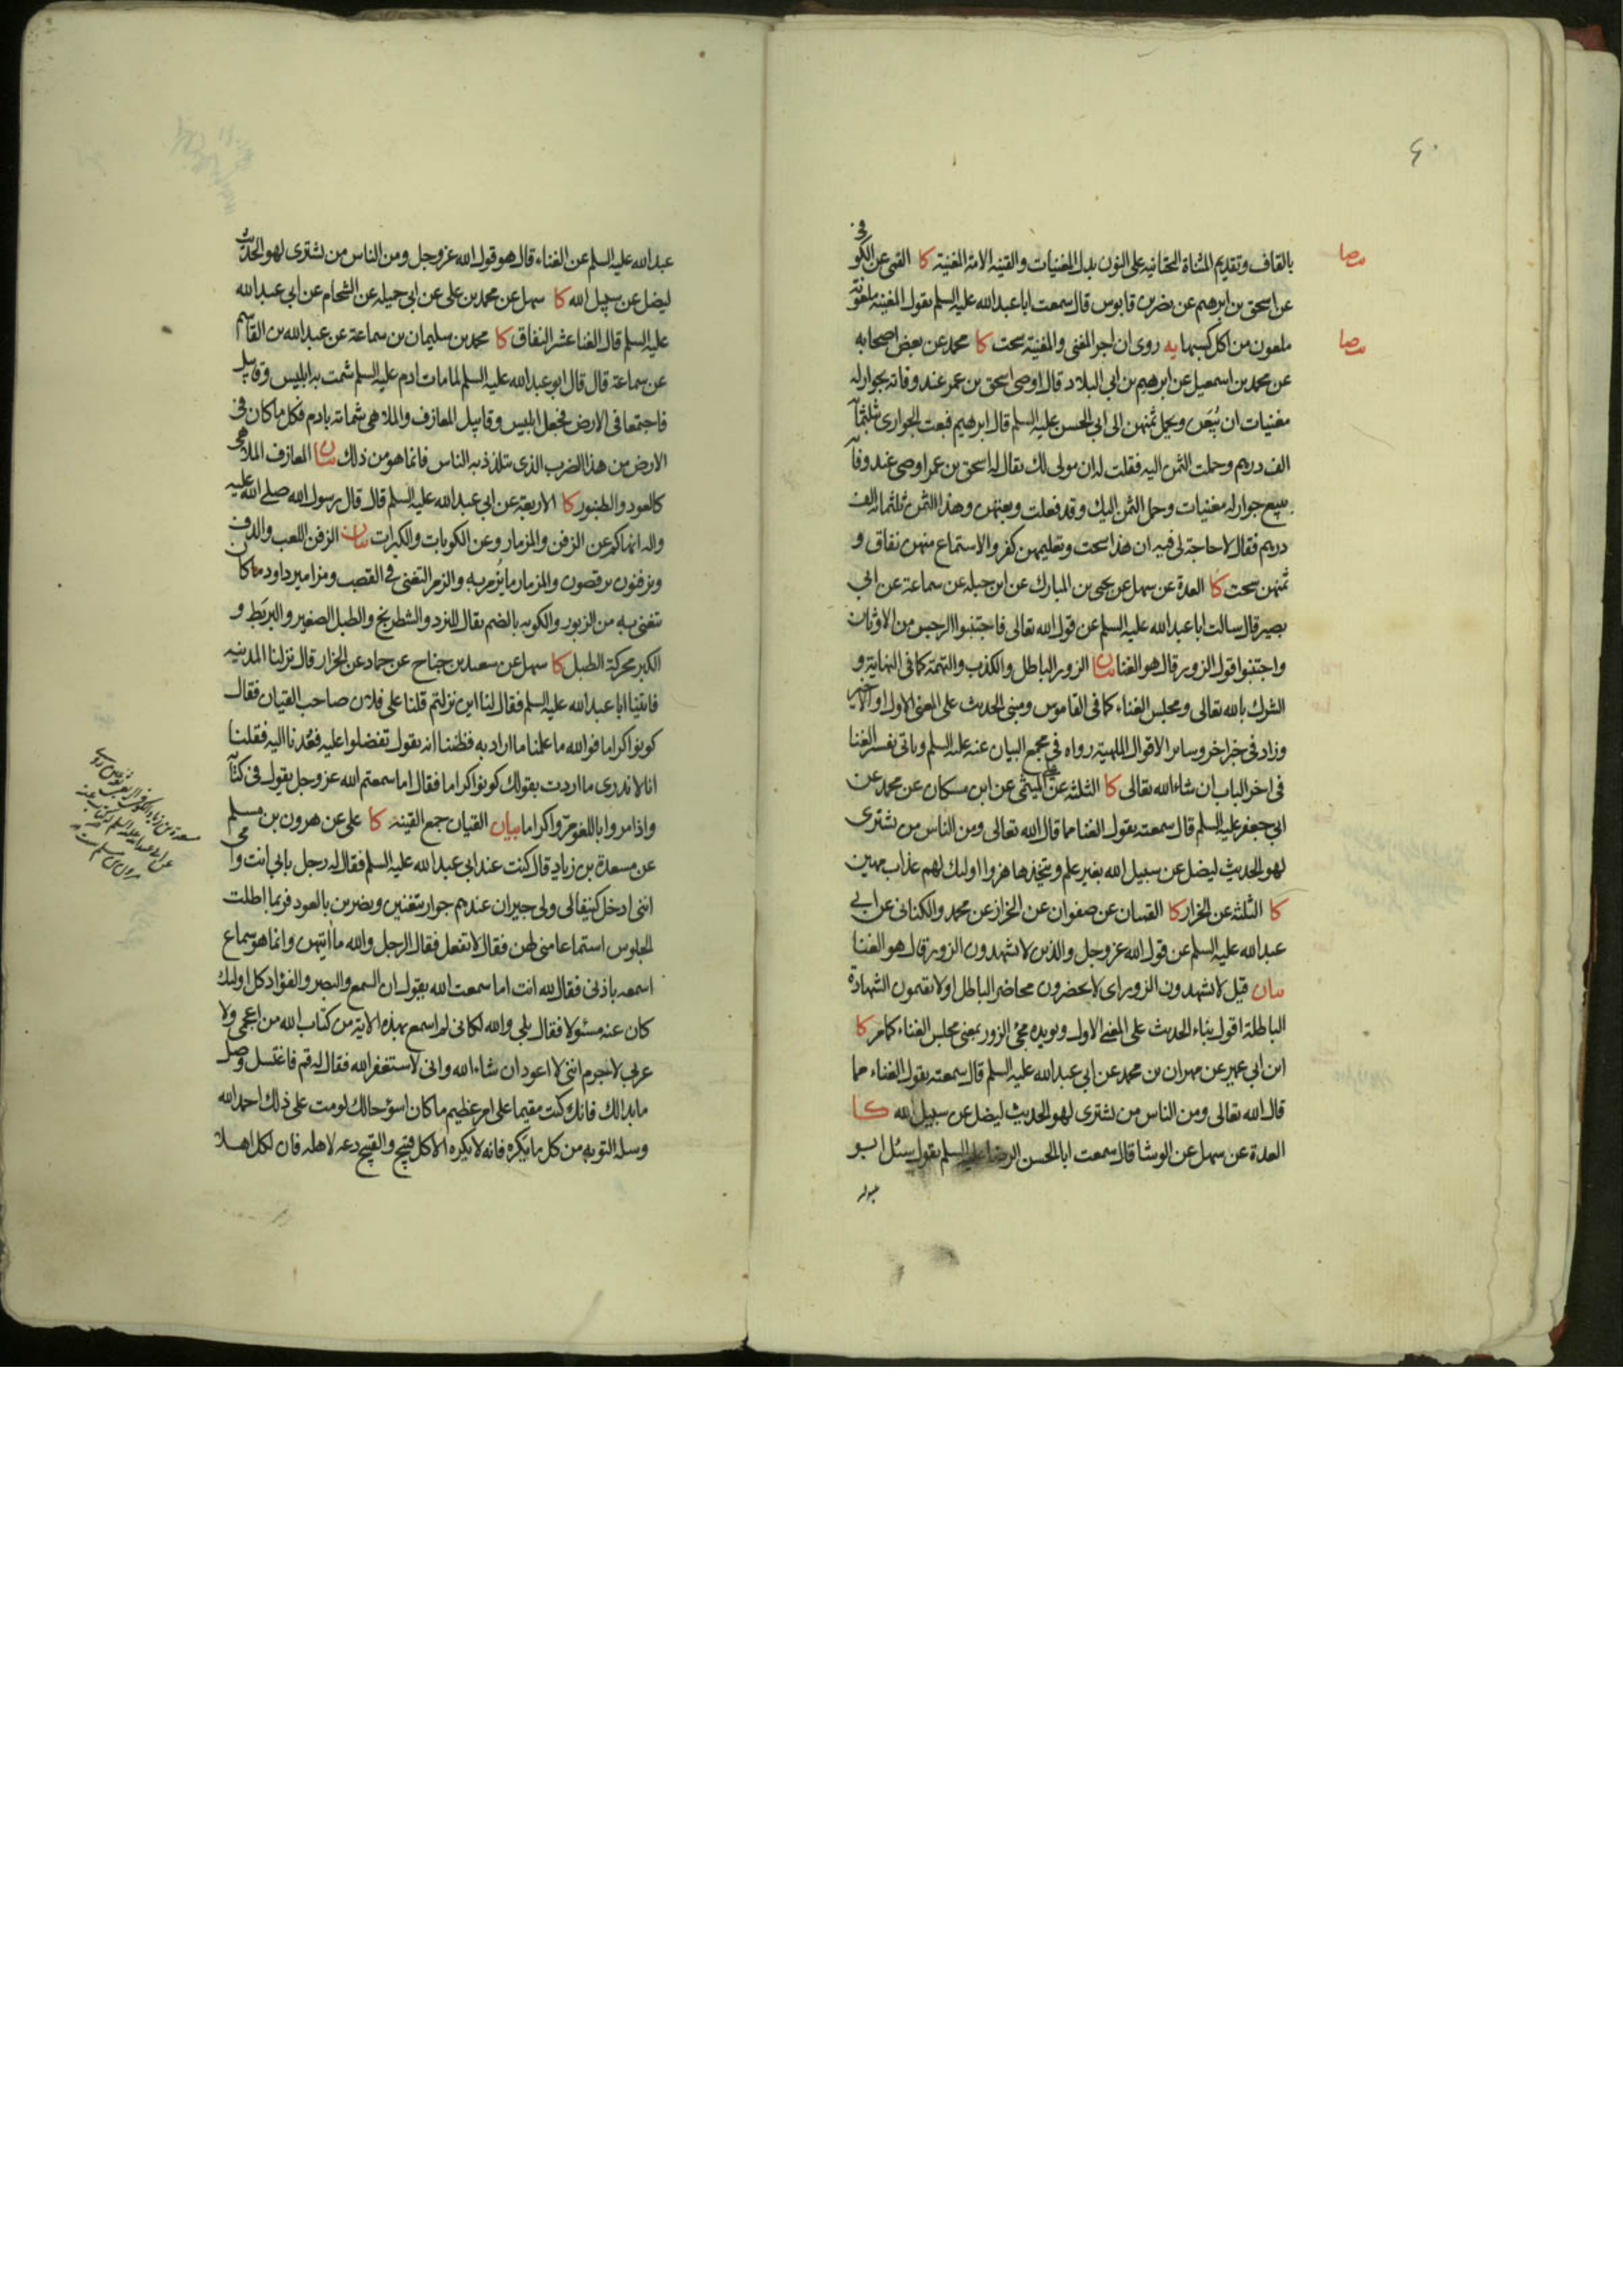 ٤٠
فى
بالقاف وتقديم المثناة التحتانيه على النون بدل المغنيات والقينه الامة المغنية كا القمى عن الكو
عن اسحق بن ابرهيم عن نضر بن قابوس قال سمعت ابا عبد الله عليه السلم يقول المغنيه ملعونة
ملعون من اكل كسبها يه روى ان اجر المغنى والمغنية سحت كا محمد عن بعض اصحابه
عن محمد بن اسمعيل عن ابرهيم بن ابي البلاد قال اوصى اسحق بن عمر عند وفاته بجوار له
مغنيات ان نبيعهن ويحمل ثمنهن إلى ابي الحسن عليه السلم قال ابرهيم فبعت الجوارى بثلثمأ
الف درهم وحملت الثمن اليه فقلت له ان مولى لك يقال له اسحق بن عمر اوصى عند وفا
ببيع جوار له مغنيات وحمل الثمن اليك وقد فعلت وبعتهن وهذا الثمن ثلثمائه الف
درهم فقال لا حاجة لى فيه ان هذا سحت وتعليمهن كفر والاستماع منهن نفاق و
ثمنهن سحت كا العدة عن سهل عن يحيى بن المبارك عن ابن جبله عن سماعة عن ابي
بصير قال سالت ابا عبد الله عليه السلم عن قول الله تعالى فاجتنبوا الرجس من الاوثان
واجتنبوا قول الزور قال هو الغنا بيان الزور الباطل والكذب والتهمة كما فى النهاية و
الشرك بالله تعالى ومجلس الغناء كما فى القاموس ومبنى الحديث على المعنى الاول او الاخير
وزاد فى خبر اخر وسائر الاقوال الملهية رواه فى مجمع البيان عنه عليه السلم وياتى تفسير الغنا
فى اخر الباب ان شاء الله تعالى كا الثلثة عن علي الميثمى عن ابن مسكان عن محمد عن
ابي جعفر عليه السلم قال سمعته يقول الغنا مما قال الله تعالى ومن الناس من يشترى
لهو الحديث ليضل عن سبيل الله بغير علم ويتخذها هزوا اولئك لهم عذاب مهين
كا الثلثة عن الخزاز كا القميان عن صفوان عن الخزاز عن محمد والكنانى عن ابي
عبد الله عليه السلم عن قول الله عز وجل والذين لا يشهدون الزور قال هو الغنا
بيان قيل لا يشهدون الزور اى لا يحضرون محاضر الباطل او لا يقيمون الشهادة
الباطلة اقول بناء الحديث على المعنى الاول ويويده مجئ الزور بمعنى مجلس الغناء كما مر كا
ابن ابي عمير عن مهران بن محمد عن ابي عبد الله عليه السلم قال سمعته يقول الغناء مما
قال الله تعالى ومن الناس من يشترى لهو الحديث ليضل عن سبيل الله كا
العدة عن سهل عن الوشا قال سمعت ابا الحسن الرضا عليه السلم يقول سئل ابو
عبد الله عليه السلم عن الغناء قال هو قول الله عز وجل ومن الناس من يشترى لهو الحديث
ليضل عن سبيل الله كا سهل عن محمد بن على عن ابي جميله عن الشحام عن ابي عبد الله
عليه السلم قال الغنا عش النفاق كا محمد بن سليمان بن سماعة عن عبد الله بن القاسم
عن سماعة قال قال ابو عبد الله عليه السلم لما مات ادم عليه السلم شمت به ابليس وقابيل
فاجتمعا فى الارض فجعل ابليس وقابيل المعازف والملاهى شماتة بادم فكل ما كان فى
الارض من هذا الضرب الذى يتلذذ به الناس فانما هو من ذلك بيان المعازف الملاهى
كالعود والطنبور كا الاربعة عن ابي عبد الله عليه السلم قال قال رسول الله صلى الله عليه
واله انهاكم عن الزفن والمزمار وعن الكوبات والكبرات بيان الزفن اللعب والدف
ويزفنون يرقصون والمزمار ما يزمر به والزمر التغنى فى القصب ومزامير داود ما كان
يتغنى به من الزبور والكوبه بالضم يقال للنرد والشطرنج والطبل الصغير والبربط و
الكبر محركة الطبل كا سهل عن سعيد بن جناح عن حماد عن الخزاز قال نزلنا المدينه
فاتينا ابا عبد الله عليه السلم فقال لنا اين نزلتم قلنا على فلان صاحب القيان فقال
كونوا كراما فوالله ما علمنا ما اراد به فظننا انه يقول تفضلوا عليه فعدنا اليه فقلنا
انا لا ندرى ما اردت بقولك كونوا كراما فقال اما سمعتم الله عز وجل يقول فى كتا
واذا مروا باللغو مروا كراما بيان القيان جمع القينة كا على عن هرون بن مسلم
عن مسعدة بن زياد قال كنت عند ابي عبد الله عليه السلم فقال له رجل بابي انت وامى
اننى ادخل كنيفا لى ولى جيران عندهم جوار يتغنين ويضربن بالعود فربما اطلت
الجلوس استماعا منى لهن فقال لا تفعل فقال الرجل والله ما اتيتهن وانما هو سماع
اسمعه باذنى فقال لله انت اما سمعت الله يقول ان السمع والبصر والفؤاد كل اولئك
كان عنه مسئولا فقال بلى والله لكانى لم اسمع بهذه الاية من كتاب الله من اعجمى ولا
عربى لا جرم اننى لا اعود ان شاء الله وانى لاستغفر الله فقال له قم فاغتسل وصل
ما بدا لك فانك كنت مقيما على امر عظيم ما كان اسوء حالك لو مت على ذلك احمد الله
وسله التوبه من كل ما يكره فانه لا يكره الا كل قبيح والقبيح دعه لاهله فان لكل اهلا